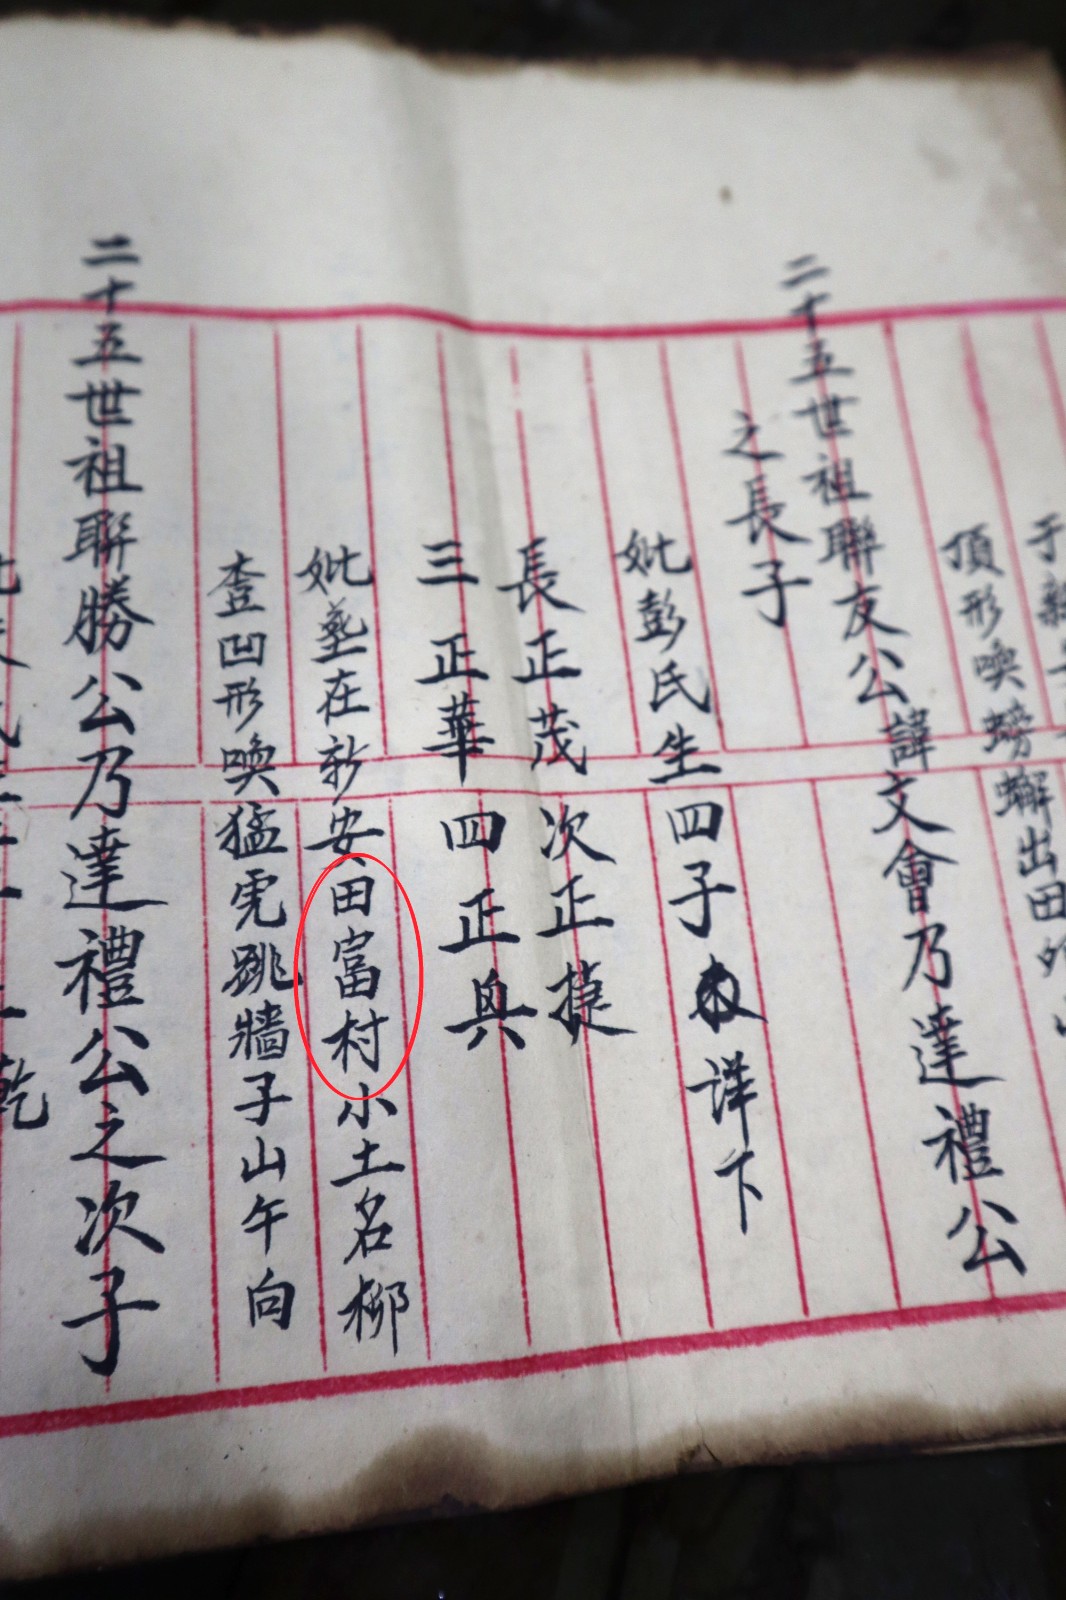 頂形喚螃蠏出田
二十五世祖聯友公諱文會乃達禮公
之長子
妣彭氏生四子詳下
長正茂 次正捷
三正華 四正興
妣塟在新安田富村小土名柳
杢凹形喚猛虎跳牆子山午向
二十五世祖聯勝公乃達禮公之次子